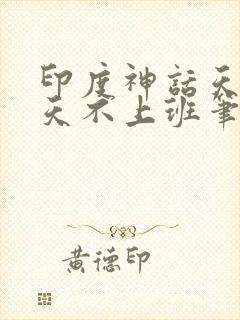 印度神話天
天不上班筆
黃德印